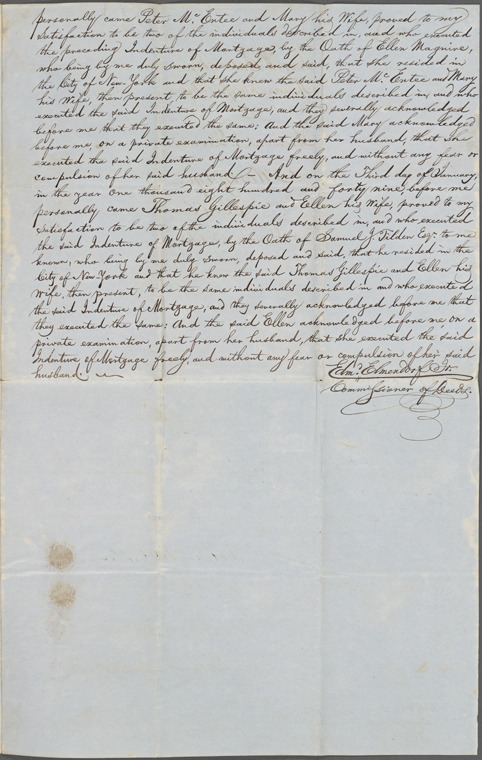 personally came Peter Mc. Entee and Mary his Wife, proved to my
satisfaction to be two of the individuals described in, and who executed
the preceding Indenture of Mortgage, by the Oath of Ellen Maguire,
who being by me duly Sworn, deposed and said, that she resided in
the City of New York and that she knew the said Peter Mc. Entee and Mary
his Wife, then present, to be the same individuals described in, and who
executed the said Indenture of Mortgage, and they severally acknowledged
before me that they executed the same; And the said Mary acknowledged
before me, on a private examination, apart from her husband, that she
executed the said Indenture of Mortgage freely, and without any fear or
compulsion of her said husband;— And on the Third day of January,
in the year one thousand eight hundred and forty nine, before me
personally came Thomas Gillespie and Ellen his Wife, proved to my
satisfaction to be two of the individuals described in, and who executed
the said Indenture of Mortgage, by the Oath of Samuel J. Tilden Esqr. to me
known, who being by me duly Sworn, deposed and said, that he resided in the
City of New York and that he knew the said Thomas Gillespie and Ellen his
Wife, then present, to be the same individuals described in and who executed
the said Indenture of Mortgage, and they severally acknowledged before me that
they executed the same; And the said Ellen acknowledged before me, on a
private examination, apart from her husband, that she executed the said
Indenture of Mortgage freely, and without any fear or compulsion of her said
husband.
Edmd. Elmendorf Jr.
Commissioner of Deeds.